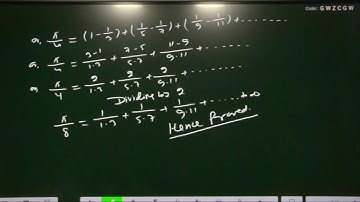 Code: GWZCGW
a, π/4 = (1 - 1/3) + (1/5 - 1/7) + (1/9 - 1/11) + ........
a, π/4 = 3-1/1.3 + 7-5/5.7 + 11-9/9.11 + ........
a, π/4 = 2/1.3 + 2/5.7 + 2/9.11 + ........
Dividing by 2
π/8 = 1/1.3 + 1/5.7 + 1/9.11 + ...... to ∞
Hence Proved.